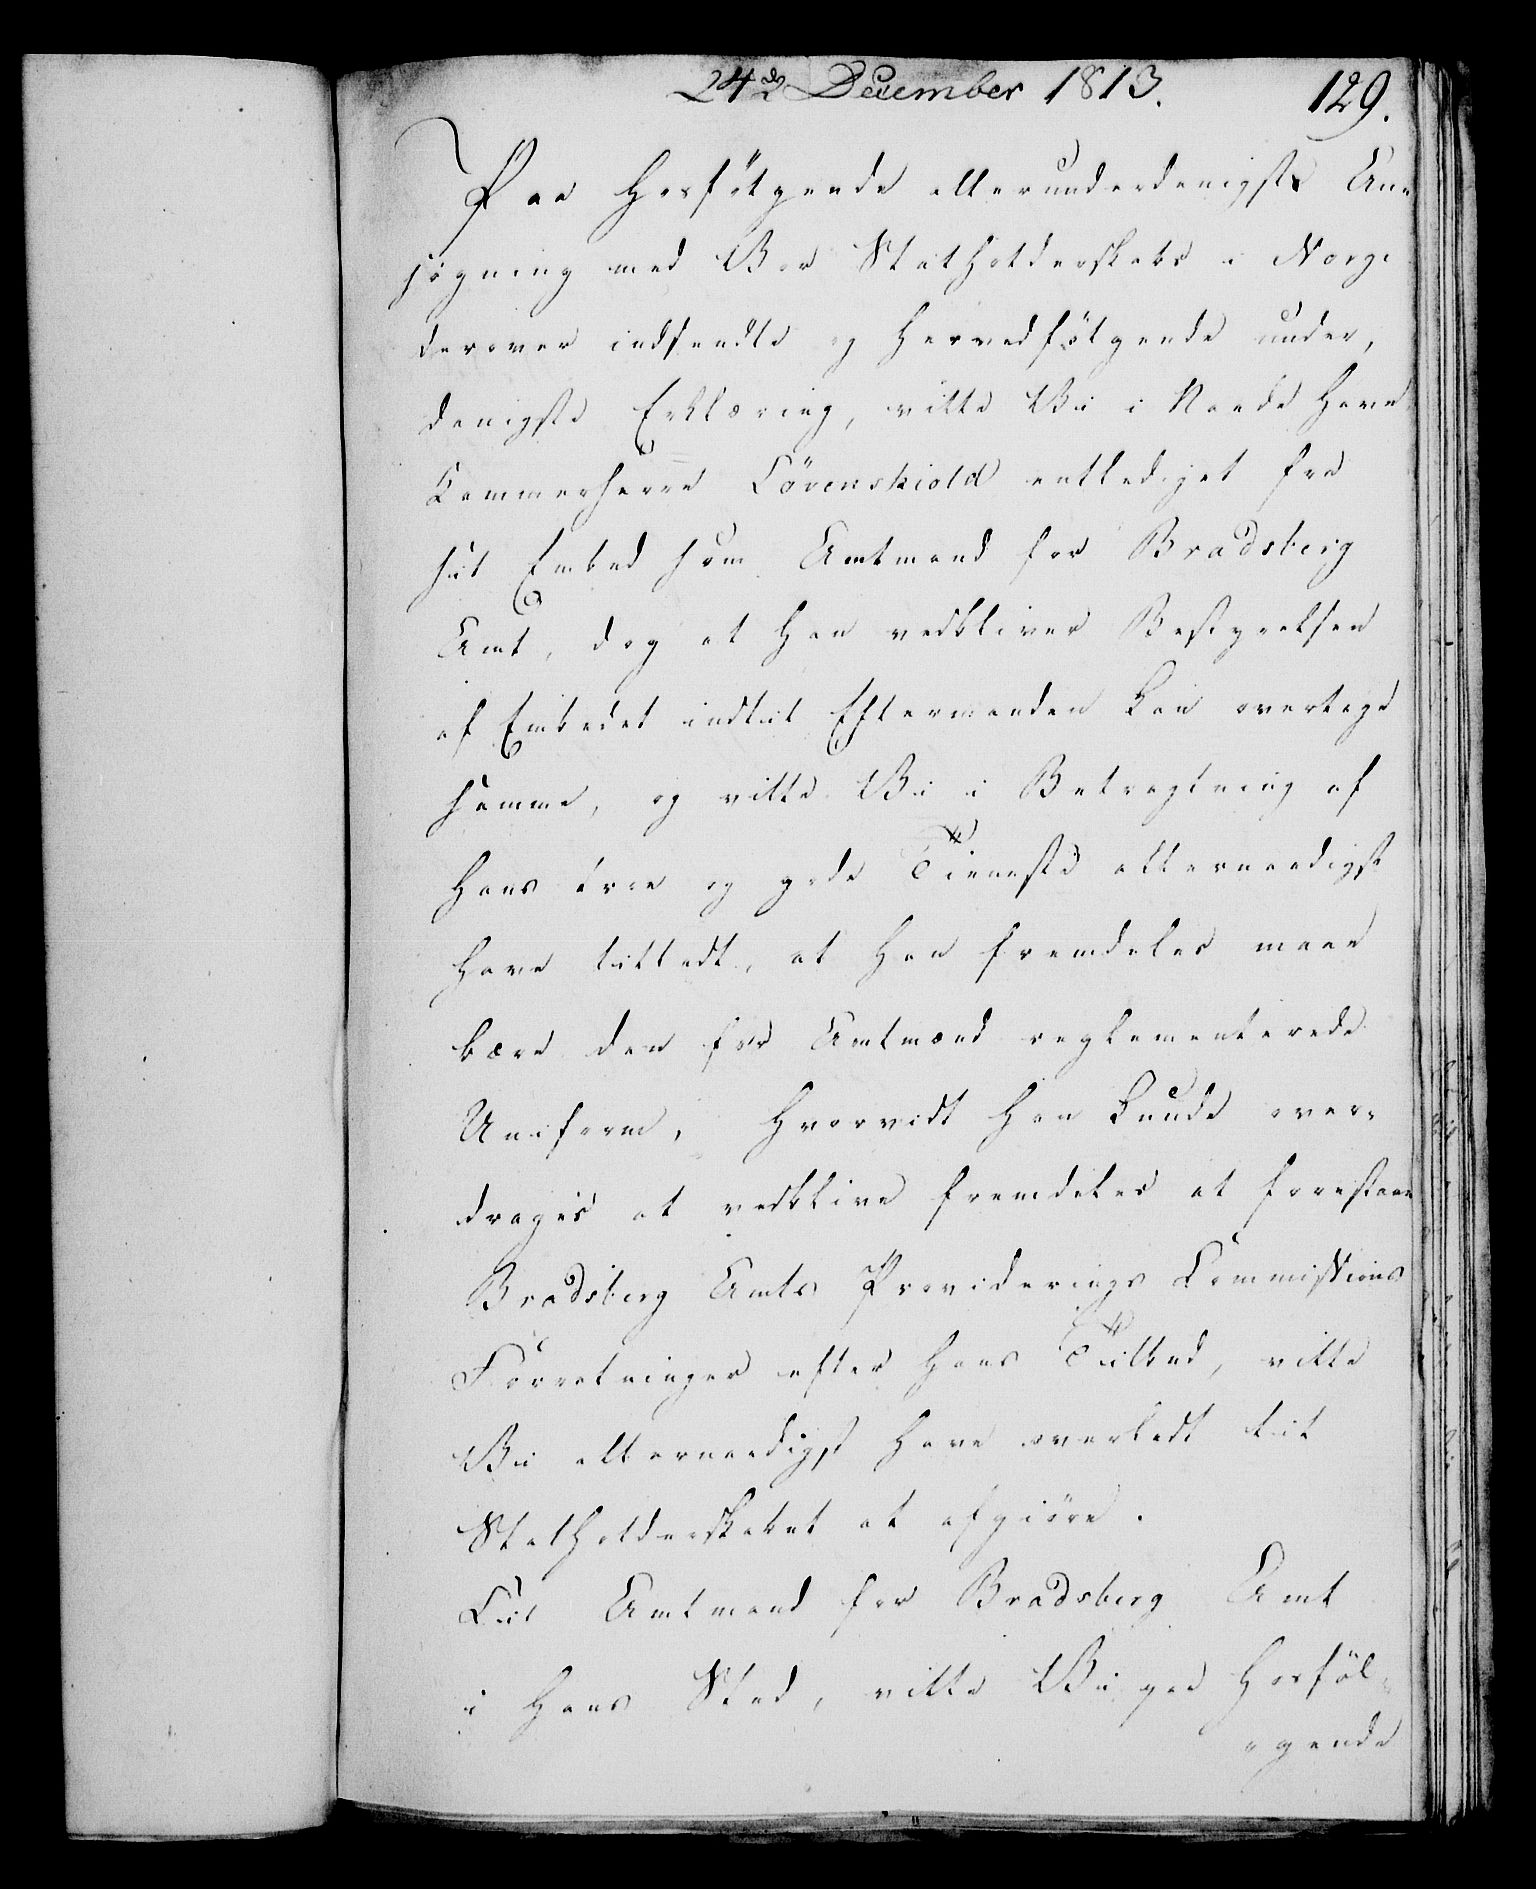 24de December 1813. 129.
Paa Hosfølgende allerunderdanigste An-
søgning med Vor Statholderskabs i Norge
derover indsendte og Hervedfølgende under,
danigste Erklæring, ville Vii i Naade Have
Kammerherre Løvenskiold entlediget fra
siit Embed som Amtmand for Bradsberg
Amt, dog at Han vedbliver Bestyrelsen
af Embedet indtil Eftermanden kan overtage
samme, og ville Vii i Betragtning af
Hans troe og gode Tieneste allernaadigst
Have tilladt, at Han fremdeles maae
bære den for Amtmænd reglementerede
Uniform, Hvorvidt Han kunde over-
drages at vedblive fremdeles at forestaae
Bradsberg Amts Provideerings Commissions
Forretninger efter Hans Tiilbud, ville
Vii allernaadigst Have overladt til
Statholderskabet at afgiøre.
Til Amtmand for Bradsberg Amt
i Hans Sted, ville Vii paa Hosføl-
-gende